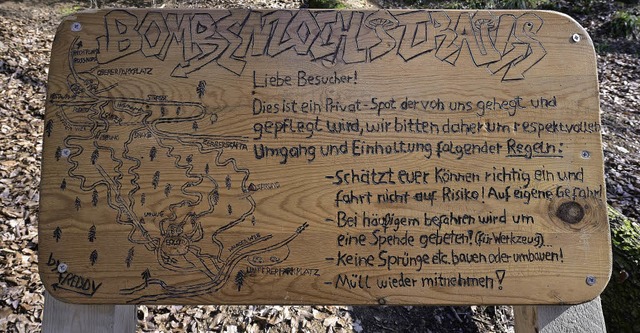 BOMBENLOCHTRAILS
Liebe Besucher!
Dies ist ein Privat-Spot der von uns gehegt und
gepflegt wird, wir bitten daher um respektvollen
Umgang und Einholtung folgender Regeln:
-Schätzt euer Können richtig ein und
fahrt nicht auf Risiko! Auf eigene Gefahr!
-Bei häufigem befahren wird um
eine Spende gebeten! (für Werkzeug)...
-Keine Sprünge etc. bauen oder umbauen!
-Müll wieder mitnehmen!
OBERER PARKPLATZ
UNTERER PARKPLATZ
by FREDDY